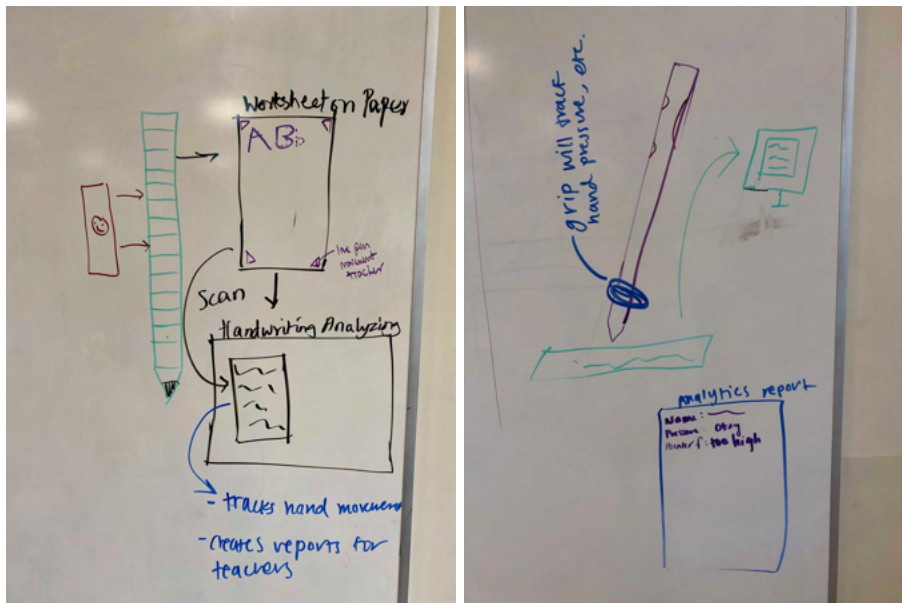 Worksheet on Paper
AB
movement
tracker
Scan
Handwriting Analyzing
- tracks hand movement
- creates reports for
teachers
grip will tract
hand pressure, etc.
Analytics report
Name:
Pressure: Okay
too high